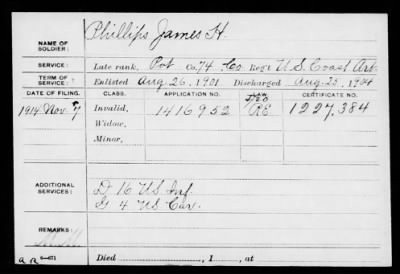 Phillips James H.
NAME OF SOLDIER:
SERVICE: Late rank, Pvt Co. 74 Co Reg't U.S. Coast Art.
TERM OF SERVICE: Enlisted Aug. 26, 1901 Discharged Aug. 25, 1904
DATE OF FILING. CLASS. APPLICATION NO. LAW. CERTIFICATE NO.
1914 Nov. 7 Invalid, 1416952 RE. 1227,384
Widow,
Minor,
ADDITIONAL SERVICES: D 16 US Inf
G 4 US Cav.
REMARKS:
Died , 1 , at